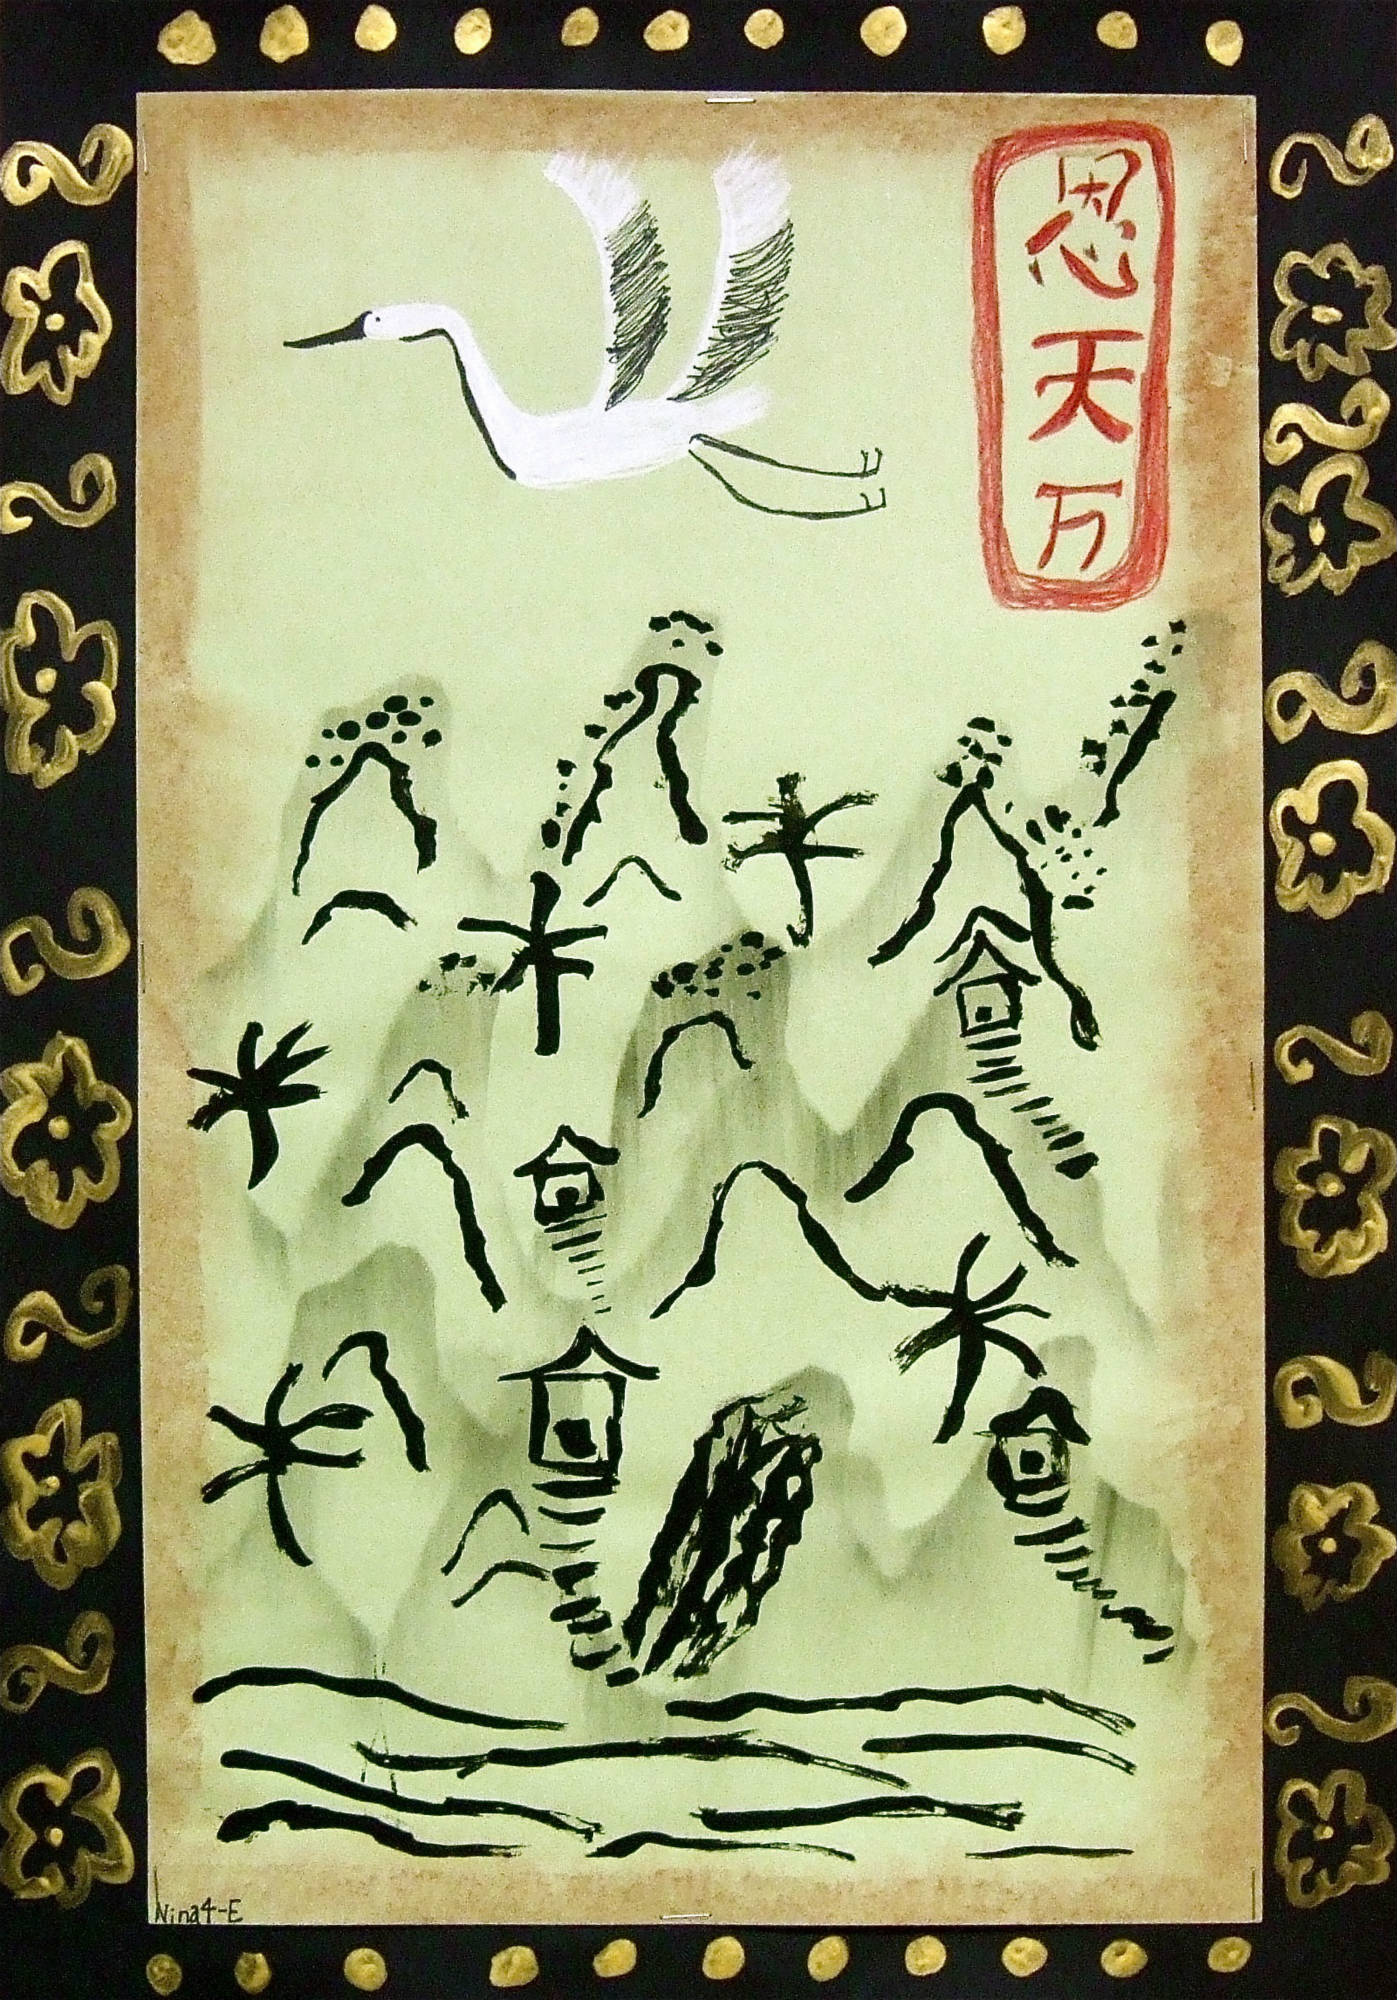 恩
天
万
Nina4-E